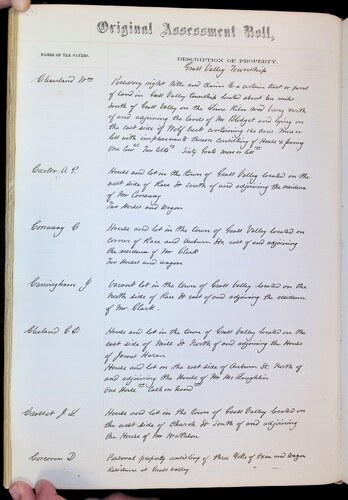 Original Assessment Roll,
NAMES OF TAX PAYERS.
DESCRIPTION OF PROPERTY.
Grass Valley Township
Cleaveland Wm
Possessory right title and claim to a certain tract or parcel
of land in Grass Valley Township located about one mile
South of Grass Valley on the Lime Kiln road lying north
of and adjoining the lands of Mr Blodget and lying on
the east side of Wolf Creek containing six acres more or
less with improvements thereon consisting of House & fencing
One Cow Two Sixty more or less
Caxter A. P.
House and lot in the town of Grass Valley located on the
west side of Race St South of and adjoining the residence
of Mr Conaway
Two Horses and Wagon
Conaway C
House and lot in the town of Grass Valley located on
corner of Race and Auburn Sts east of and adjoining
the residence of Mr Clark
Two Horses and wagon
Cunningham, J
Vacant lot in the town of Grass Valley located on the
North side of Race St east of and adjoining the residence
of Mr. Clark.
Cleland C D
House and lot in the town of Grass Valley located on the
east side of Mill St North of and adjoining the House
of James Horan
House and lot on the east side of Auburn St. North of
and adjoining the House of Mr McLaughlin
One Horse Cash on hand
J L
House and lot in the town of Grass Valley located on
the west side of Church St South of and adjoining
the House of Mr
Corcoran D
Personal property consisting of three Yokes of Oxen and Wagon
Residence at Grass Valley